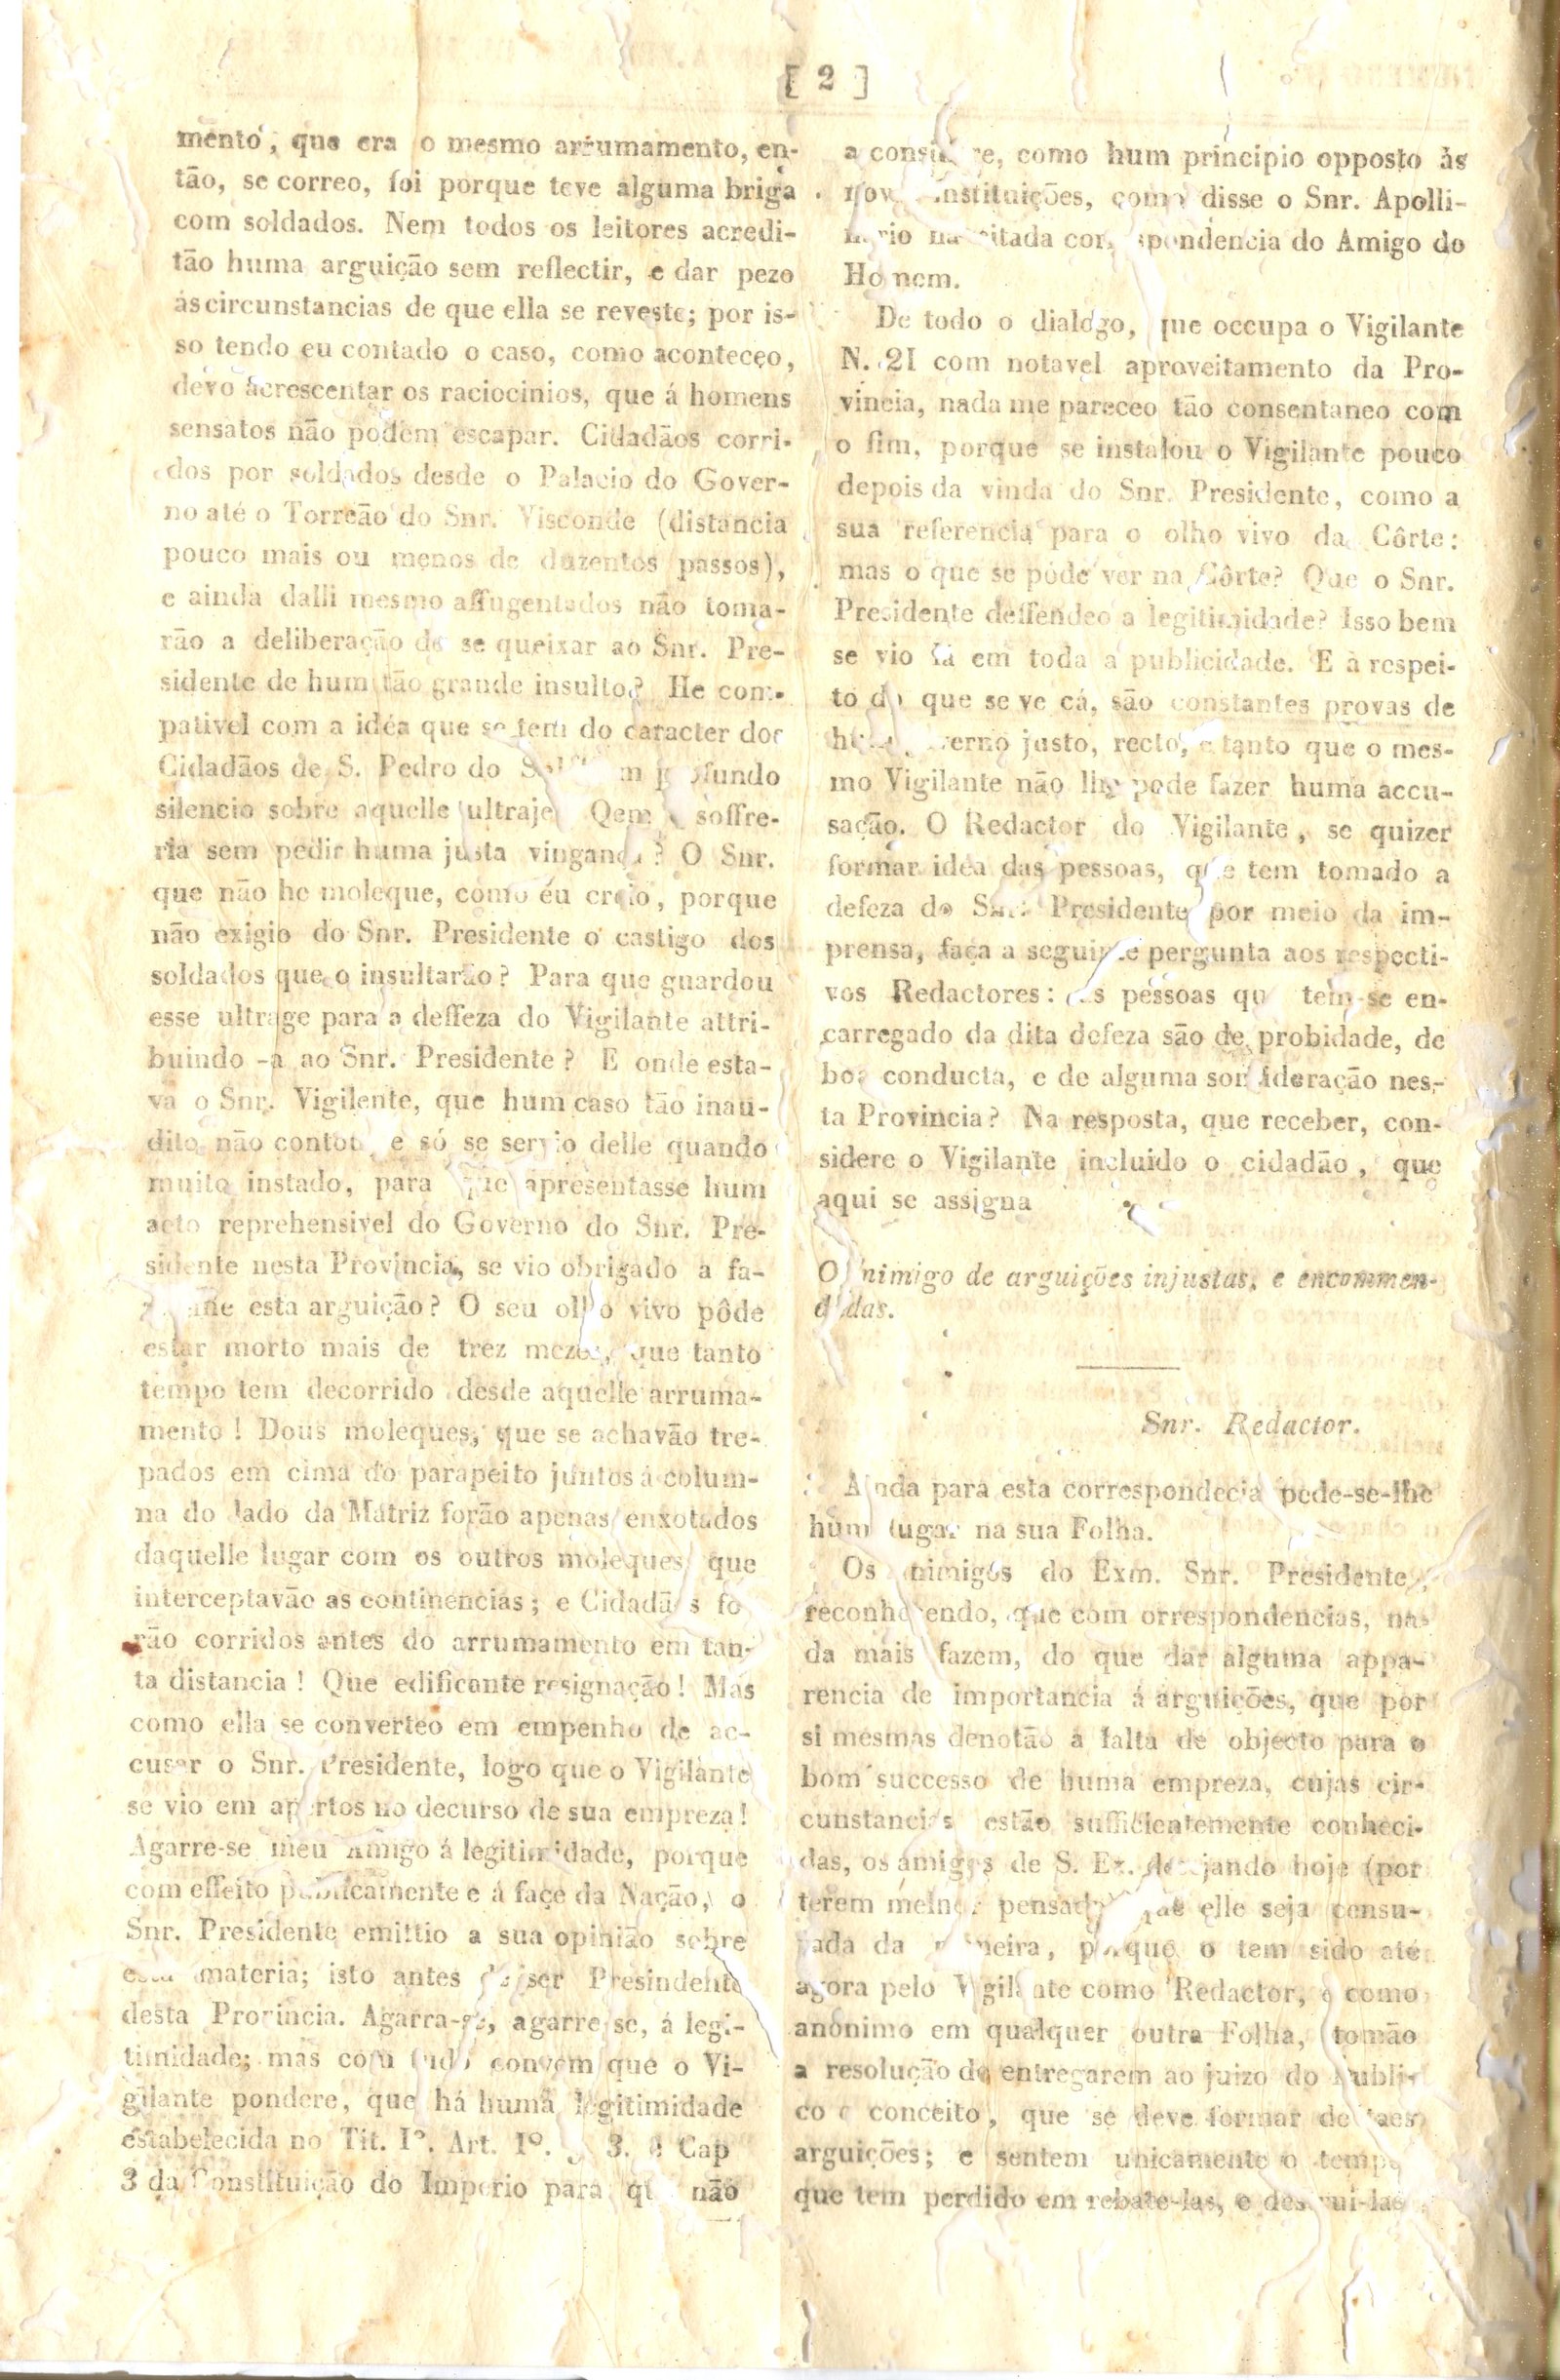 [ 2 ]
mento, que era o mesmo arrumamento, en-
tão, se correo, foi porque teve alguma briga
com soldados. Nem todos os leitores acredi-
tão huma arguição sem reflectir, e dar pezo
ás circunstancias de que ella se reveste; por is-
so tendo eu contado o caso, como aconteceo,
devo acrescentar os raciocinios, que á homens
sensatos não podem escapar. Cidadãos corri-
dos por soldados desde o Palacio do Gover-
no até o Torreão do Snr. Visconde (distancia
pouco mais ou menos de duzentos passos),
e ainda dalli mesmo affugentados não toma-
rão a deliberação de se queixar ao Snr. Pre-
sidente de hum tão grande insulto? He com-
pativel com a idéa que se tem do caracter dos
Cidadãos de S. Pedro do profundo
silencio sobre aquelle ultraje Qem soffre-
ria sem pedir huma justa vingança? O Snr.
que não he moleque, como eu creio, porque
não exigio do Snr. Presidente o castigo dos
soldados que o insultarão? Para que guardou
esse ultrage para a deffeza do Vigilante attri-
buindo -a ao Snr. Presidente? E onde esta-
va o Snr. Vigilente, que hum caso tão inau-
dito não contou e só se servio delle quando
muito instado, para que apresentasse hum
acto reprehensivel do Governo do Snr. Pre-
sidente nesta Provincia, se vio obrigado a fa-
esta arguição? O seu olho vivo pôde
estar morto mais de trez mezes, que tanto
tempo tem decorrido desde aquelle arruma-
mento! Dous moleques, que se achavão tre-
pados em cima do parapeito juntos á colum-
na do lado da Matriz forão apenas enxotados
daquelle lugar com os outros moleques que
interceptavão as continencias; e Cidadãos fo
rão corridos antes do arrumamento em tan-
ta distancia! Que edificante resignação! Mas
como ella se converteo em empenho de ac-
cusar o Snr. Presidente, logo que o Vigilante
se vio em apertos no decurso de sua empreza!
Agarre-se meu Amigo á legitimidade, porque
com effeito publicamente e á face da Nação, o
Snr. Presidente emittio a sua opinião sobre
esta materia; isto antes de ser Presindente
desta Provincia. Agarra-se, agarre se, á legi-
timidade; mas com tudo convem que o Vi-
gilante pondere, que há huma legitimidade
estabelecida no Tit. Iº. Art. Iº. 3. e Cap
3 da Constituição do Imperio para que não
a considere, como hum principio opposto ás
novas instituições, como disse o Snr. Apolli-
nario na citada correspondencia do Amigo do
Homem.
De todo o dialogo, que occupa o Vigilante
N. 21 com notavel aproveitamento da Pro-
vincia, nada me pareceo tão consentaneo com
o fim, porque se instalou o Vigilante pouco
depois da vinda do Snr. Presidente, como a
sua referencia para o olho vivo da Côrte:
mas o que se pode ver na Côrte? Que o Snr.
Presidente deffendeo a legitimidade? Isso bem
se vio lá em toda a publicidade. E a respei-
to do que se ve cá, são constantes provas de
hum Governo justo, recto, e tanto que o mes-
mo Vigilante não lhe pode fazer huma accu-
sação. O Redactor do Vigilante, se quizer
formar idéa das pessoas, que tem tomado a
defeza do Snr. Presidente por meio da im-
prensa, faça a seguinte pergunta aos respecti-
vos Redactores: as pessoas que tem-se en-
carregado da dita defeza são de probidade, de
boa conducta, e de alguma consideração nes-
ta Provincia? Na resposta, que receber, con-
sidere o Vigilante incluido o cidadão, que
aqui se assigna
O inimigo de arguições injustas, e encommen-
dadas.
Snr. Redactor.
Ainda para esta correspondecia pede-se-lhe
hum lugar na sua Folha.
Os inimigos do Exm. Snr. Presidente,
reconhecendo, que com orrespondencias, na-
da mais fazem, do que dar alguma appa-
rencia de importancia á arguições, que por
si mesmas denotão a falta de objecto para o
bom successo de huma empreza, cujas cir-
cunstancias estão sufficientemente conheci-
das, os amigos de S. Ex. desejando hoje (por
terem melhor pensado) que elle seja censu-
rada da maneira, porque o tem sido até
agora pelo Vigilante como Redactor, e como
anonimo em qualquer outra Folha, tomão
a resolução de entregarem ao juizo do Publi-
co o conceito, que se deve formar de taes
arguições; e sentem unicamente o tempo
que tem perdido em rebate-las, e destrui-las